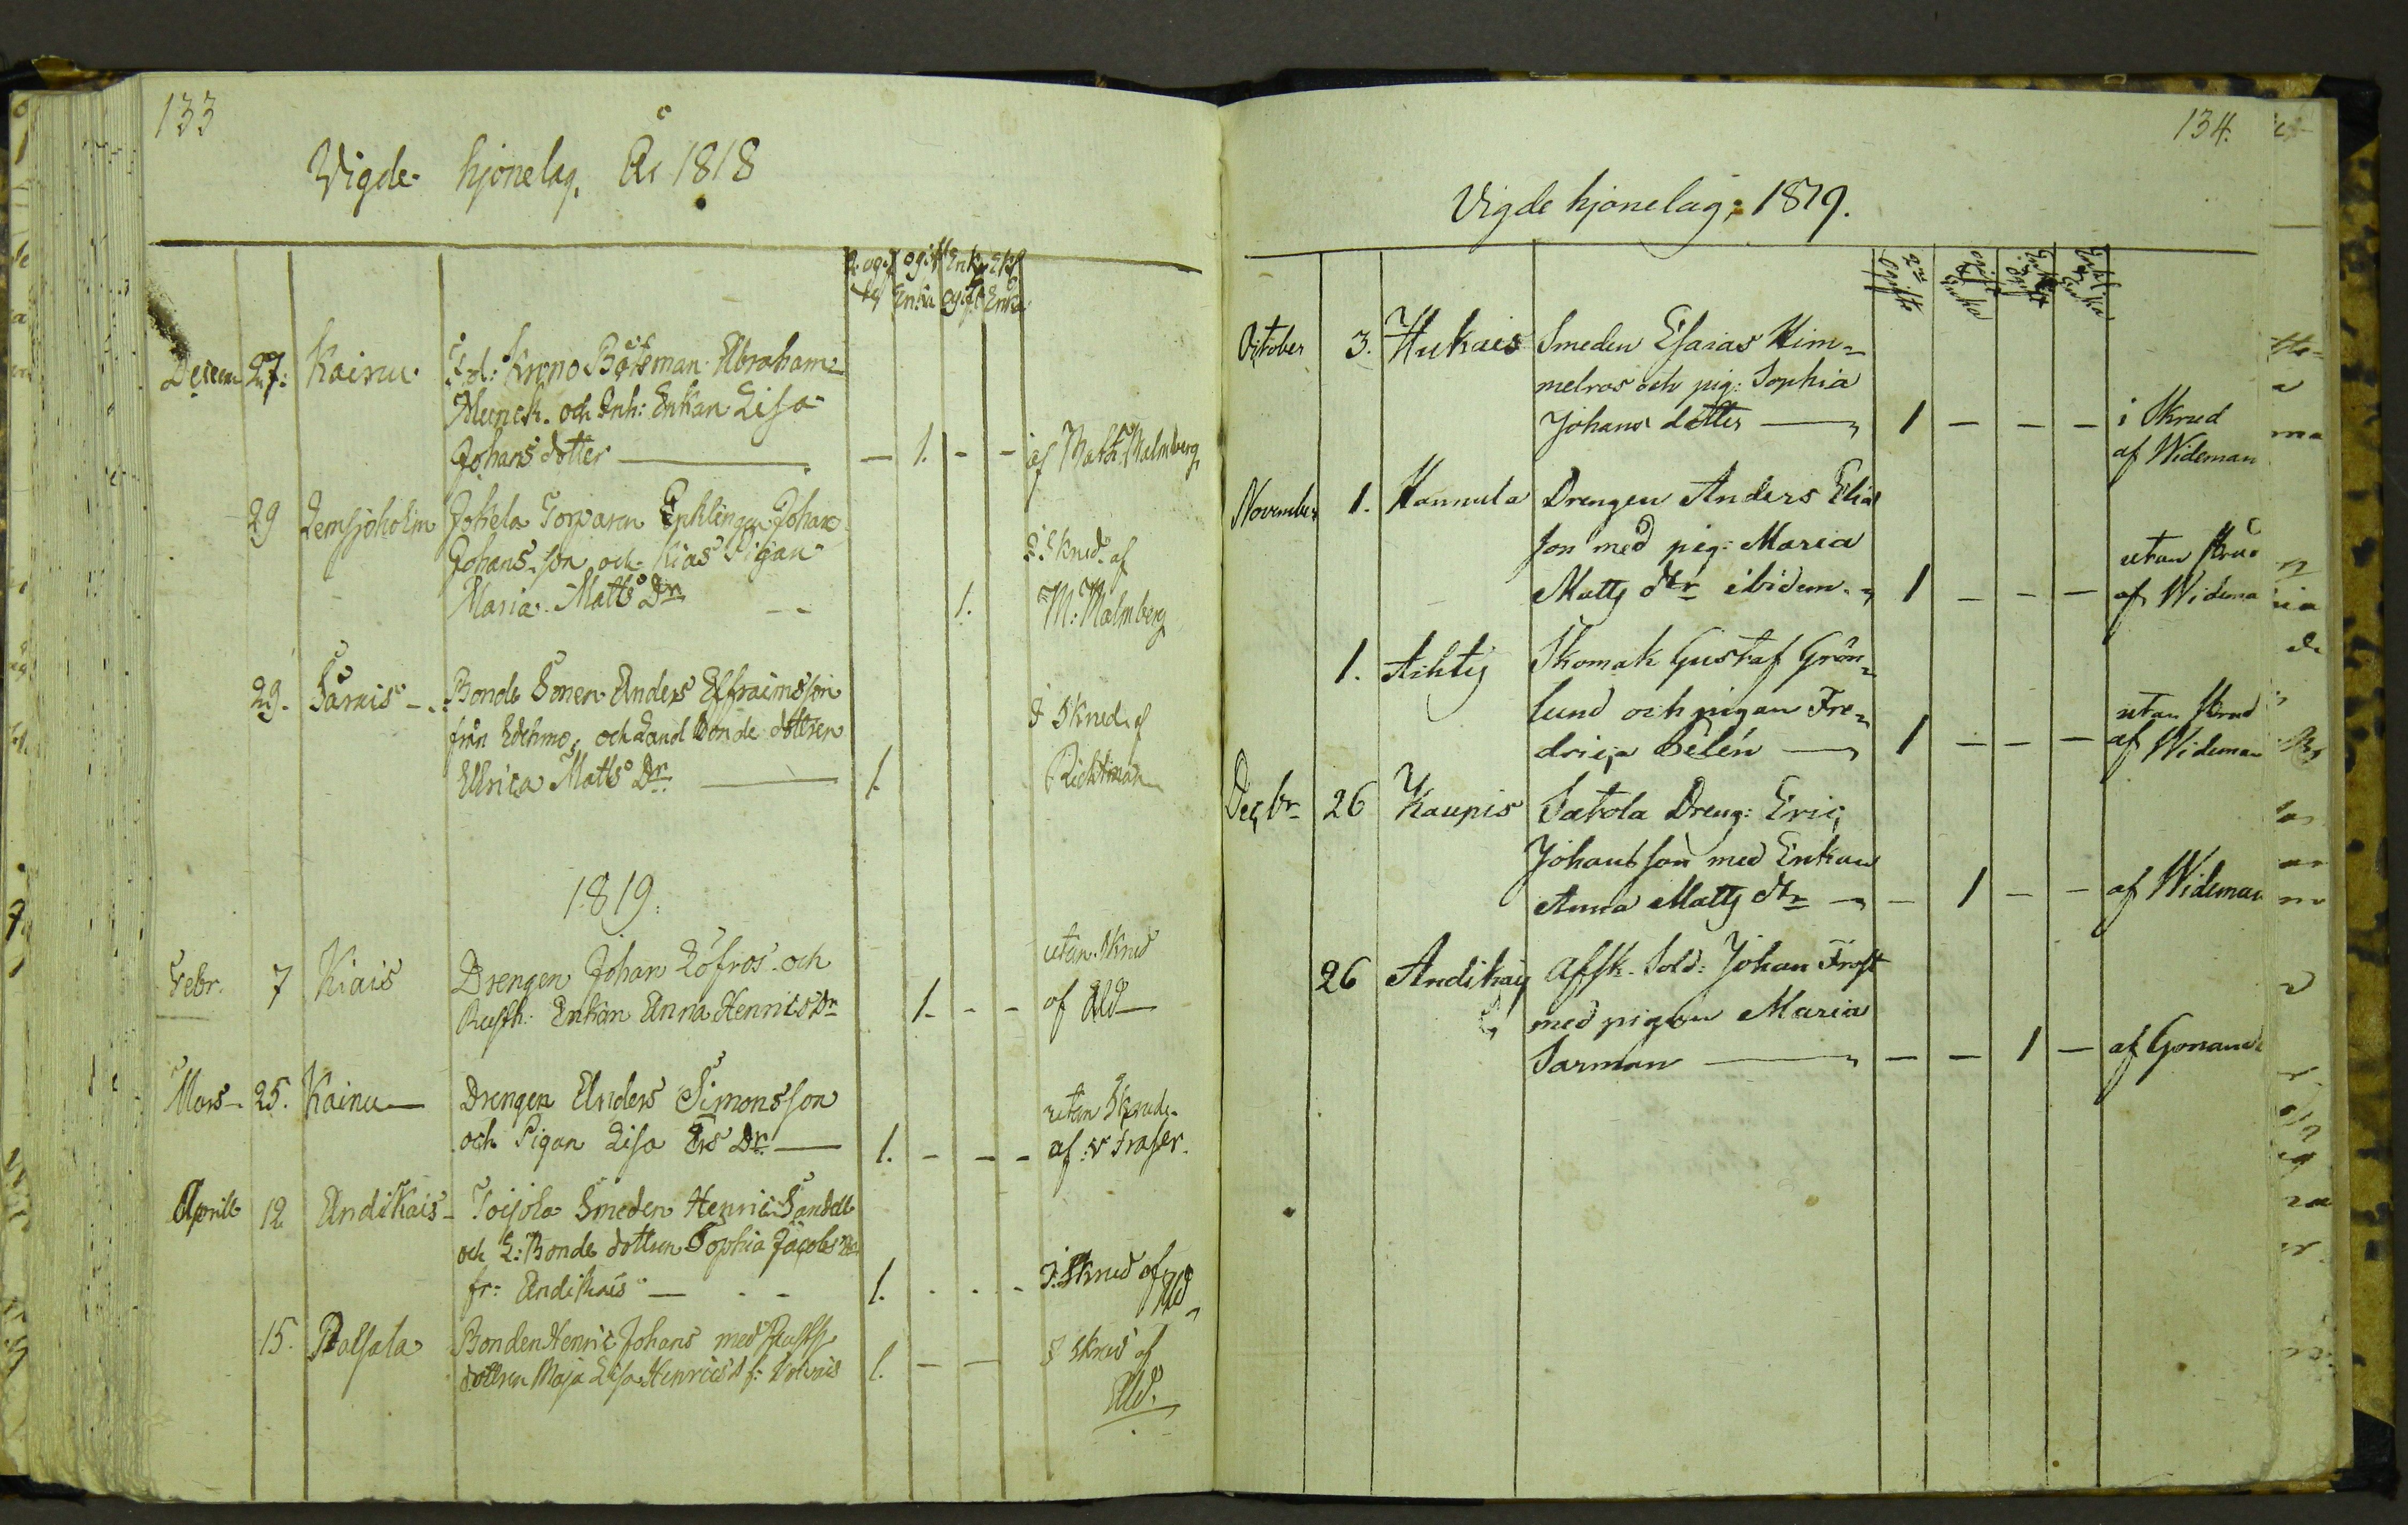 133
Vigde hjonelag, År 1818
2. ogif ogift Enkl Enkl
te Enka ogift Enka
Decem 27: Kainu F.d: Krono Båtsman Abraham
Munck. och Inh: Enkan Lisa
Johans dotter — 1. - - af Math: Malmberg
29 Lemsjoholm Jokela Torparen Enklingen Johan
Johans son och Kias Pigan I Skrud af
Maria Matts Dr 1. M: Malmberg
29. Särnis Bonde Sonen Anders Effraimsson
från och Land Bonde dottren I Skrud af
Ulrica Matts Dr 1.
1819.
Febr. 7 Kiais Drengen Johan Löfros och utan Skrud
Rusth: Enkan Anna Henrics Dr 1. - - af
Mars 25. Kainu Drengen Anders Simonsson utan Skrud
och Pigan Lisa Ers Dr 1. - - - af: v Fraser.
Aprill 12 Andikais Toijola Smeden Henric Sandell
och L: Bonde dottren Sophia Jacobs Dr
fr: Andikais — 1. I. Skrud af
15. Palsala Bonden Henric Johans med Rusth
dottren Maja Lisa Henrics d f: 1. — — I skrud af
134.
Vigde hjonelag; 1819.
2ne ogifte ogift Enka Enkl ogift
October 3. Hukais Smeden Esaias Him=
melros och pig: Sophia
Johans dotter 1 — — — i Skrud
af Wideman
November 1. Hannula Drengen Anders Elias
son med pig: Maria utan Skrud
Matts dtr ibidem. 1 — — — af Widema
1. Aihtis Skomak Gustaf Grön=
lund och pigan Fre= utan Skrud
drica Selén 1 — — — af Wideman
Decbr 26 Kaupis Satola Dreng: Eric
Johansson med Enkan
Anna Matts dtr — 1 — — af Wideman
26 Andikais Afsk. Sold: Johan Frost
med pigan Maria
Sarman — — 1 — af Gonand